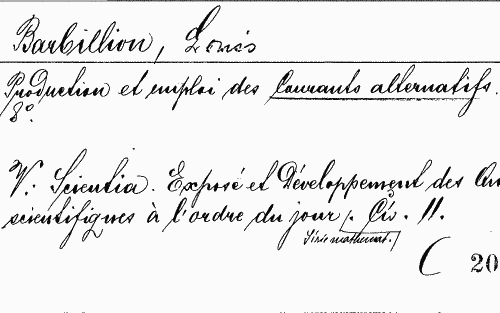 Barbillion, Louis
Production et emploi des Courants alternatifs.
8°.
V. Scientia. Exposé et Développement des
scientifiques à l'ordre du jour. 11.
Série mathémat.
( 20